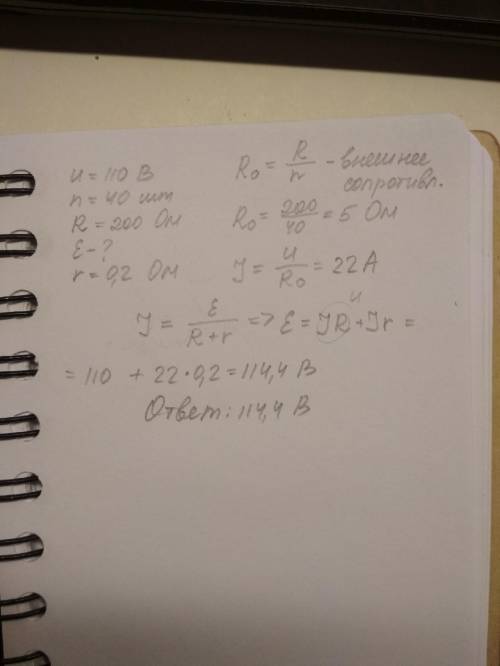 U = 110 В
n = 40 шт
R = 200 Ом
ℰ - ?
r = 0,2 Ом
R₀ = R/n - внешнее сопротивл.
R₀ = 200/40 = 5 Ом
J = U/R₀ = 22 А
J = ℰ/(R+r) => ℰ = JR + Jr =
U
= 110 + 22·0,2 = 114,4 В
Ответ: 114,4 В